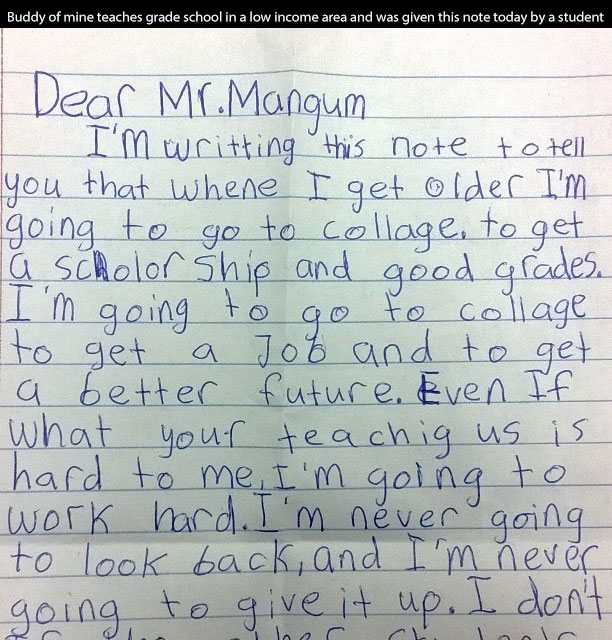 Buddy of mine teaches grade school in a low income area and was given this note today by a student
Dear Mr. Mangum
I'm writting this note to tell
you that whene I get older I'm
going to go to collage. to get
a scholor ship and good grades.
I'm going to go to collage
to get a Job and to get
a better future. Even If
what your teachig us is
hard to me, I'm going to
work hard. I'm never going
to look back, and I'm never
going to give it up. I don't